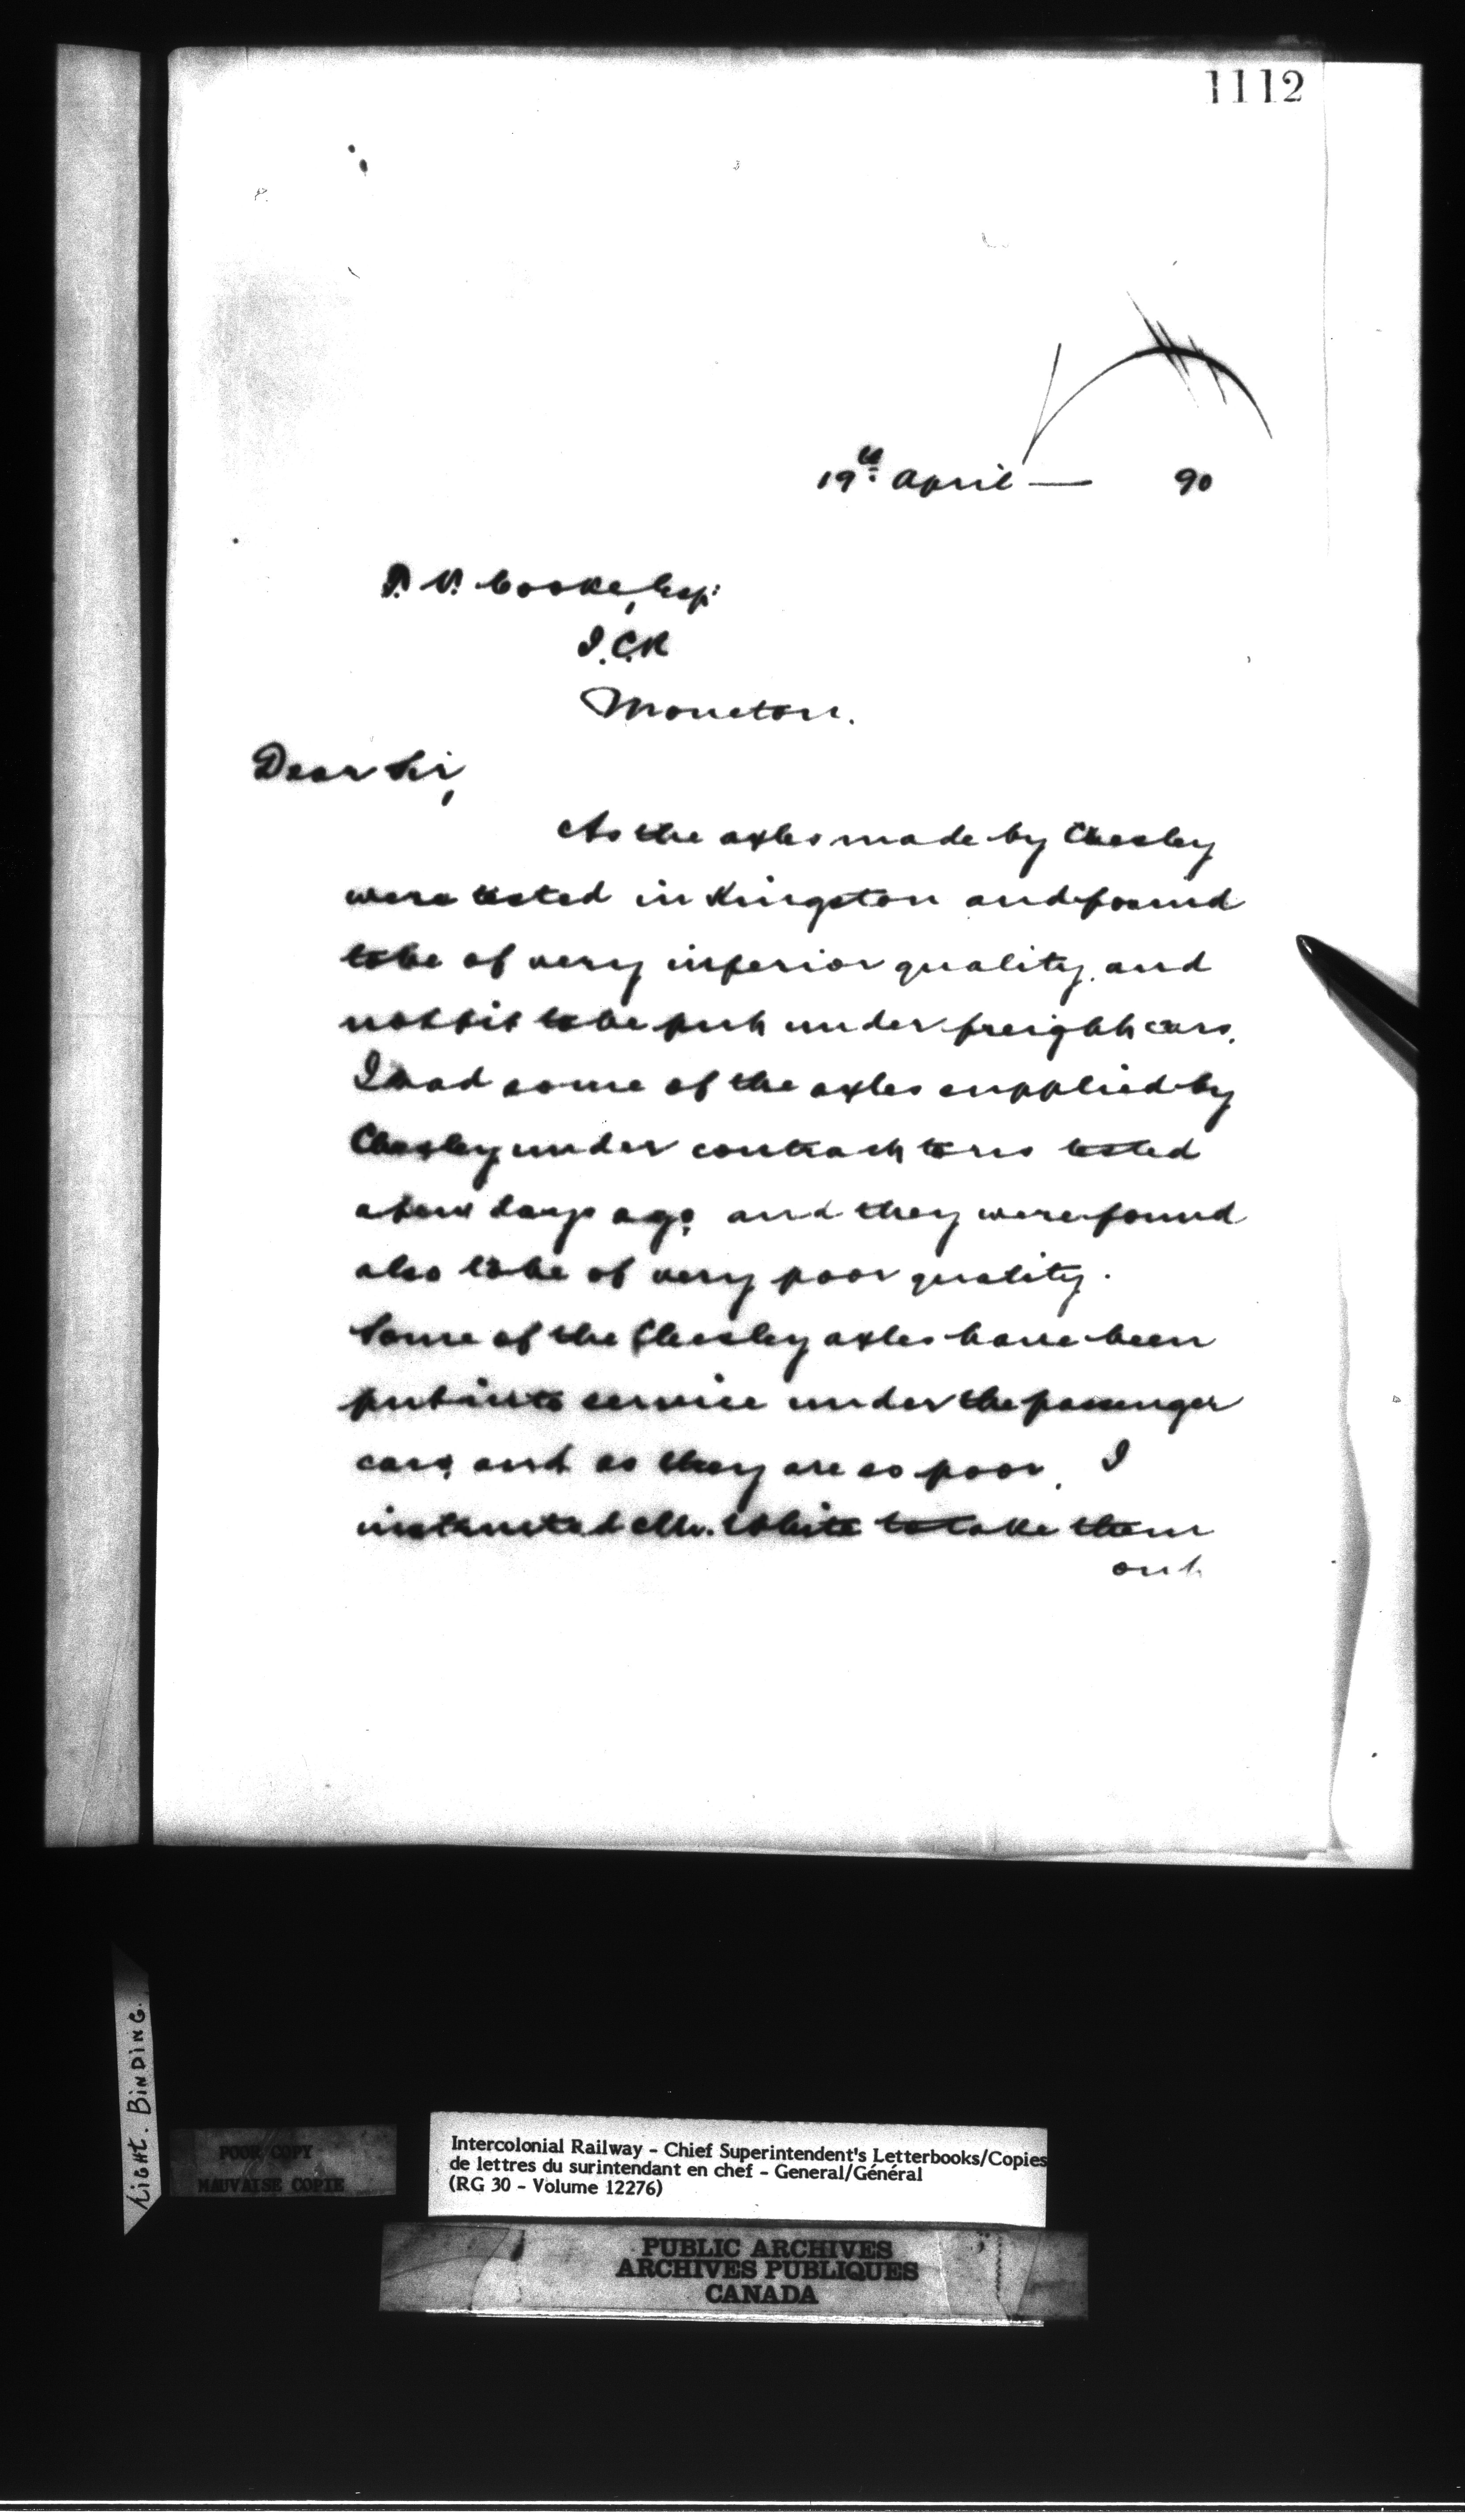 1112
19th April — 90
P. V. Cooke, Esq:
I.C.R
Moncton.
Dear Sir,
As the axles made by Chesley
were tested in Kingston and found
to be of very inferior quality, and
not fit to be put under freight cars,
I had some of the axles supplied by
Chesley under contract to us tested
a few days ago, and they were found
also to be of very poor quality.
Some of the Chesley axles have been
put into service under the passenger
cars, and as they are so poor, I
instructed Mr. White to take them
out
Light. BINDING.
POOR COPY
MAUVAISE COPIE
Intercolonial Railway - Chief Superintendent's Letterbooks/Copies
de lettres du surintendant en chef - General/Général
(RG 30 - Volume 12276)
PUBLIC ARCHIVES
ARCHIVES PUBLIQUES
CANADA